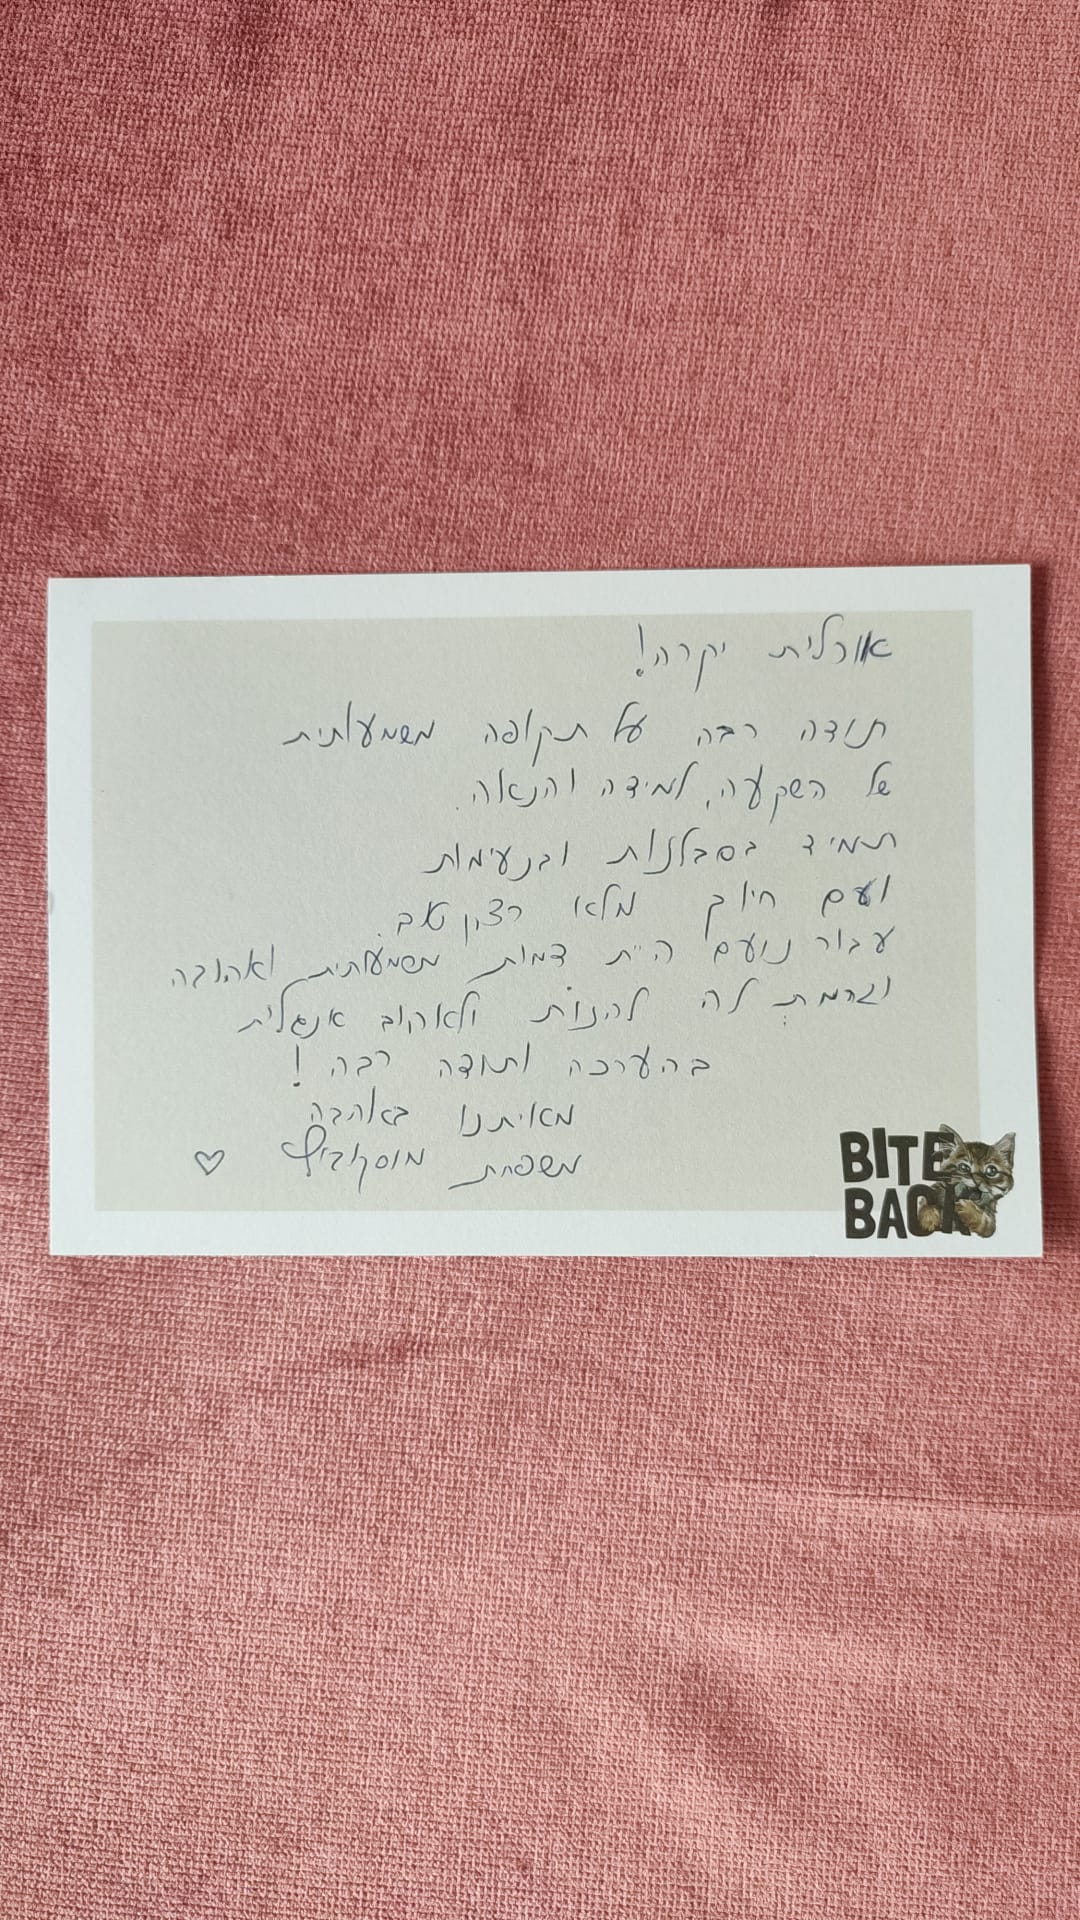 אורלית יקרה!
תודה רבה על תקופה משמעותית
של השקעה, למידה והנאה.
תמיד בסבלנות ובנעימות
ועם חיוך מלא רצון טוב.
עבור נועם היית דמות משמעותית ואהובה
וגרמת לה להנות ולאהוב אנגלית
בהערכה ותודה רבה!
מאיתנו באהבה
משפחת מוסקוביץ ♡
BITE
BACK